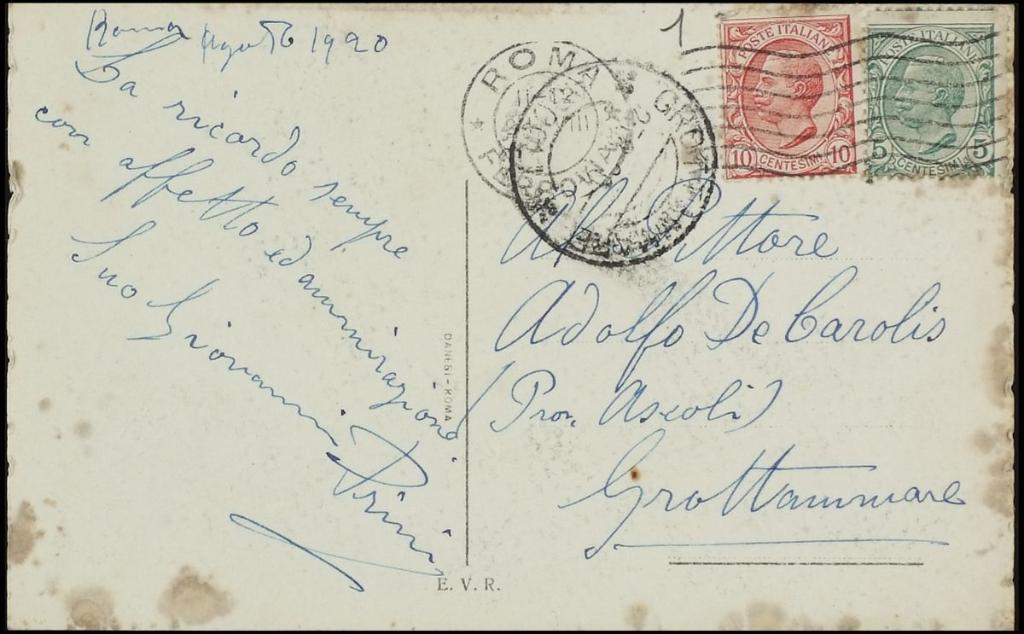 Roma Agosto 1920
La ricordo sempre
con affetto ed ammirazione
Suo Giovanni Prini
1
ROMA
GROTTAMMARE
POSTE ITALIANE
10 CENTESIMI 10
POSTE ITALIANE
5 CENTESIMI 5
Al Pittore
Adolfo De Carolis
(Prov. Ascoli)
Grottammare
DANESI-ROMA
E. V. R.